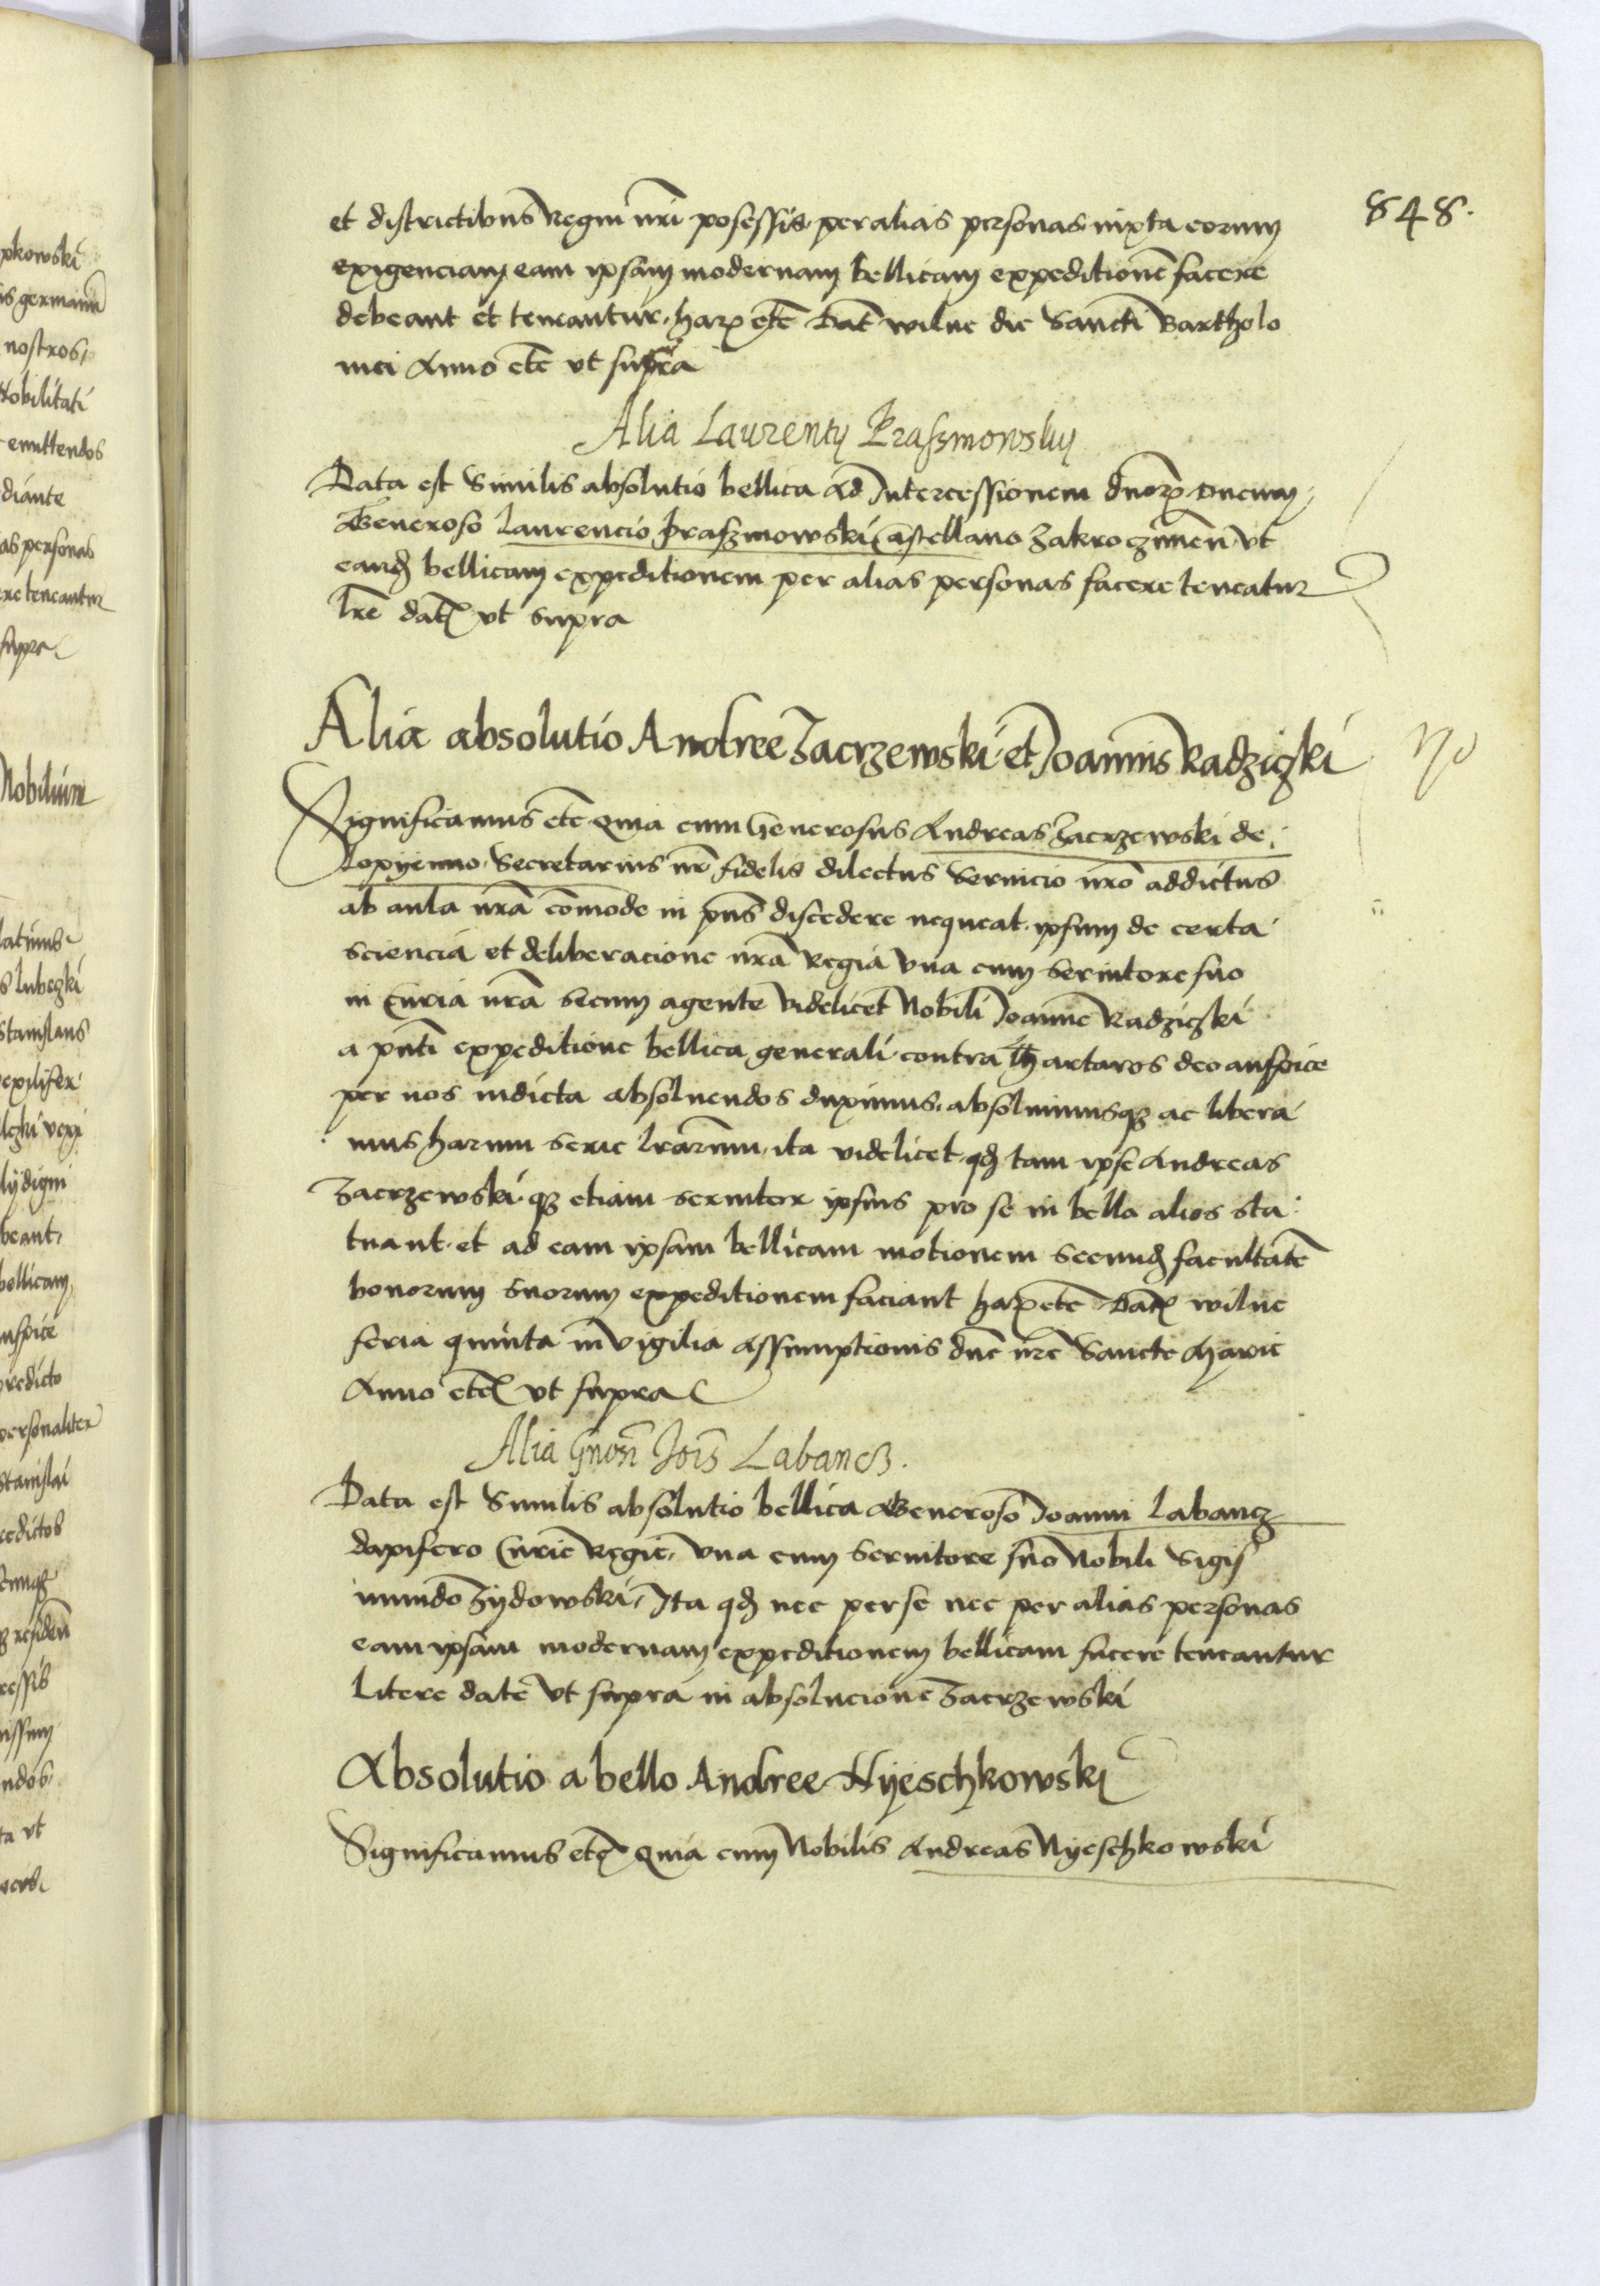 848.
et districtibus Regni nr̄i posessis, per alias personas iuxta eorum
exigenciam eam ipsam modernam bellicam expeditionē facere
debeant et teneantur. harꝫ etc̄ Dat̄ wilne die Sancti Bartholo
mei Anno etc̄ vt supra
Alia Laurentij Praszmowskij
Data est Similis absolutio bellica Ad Intercessionem dn̄orꝫ
Generoso Laurencio praszmowski Castellano Zakroczimen̄ vt
eand bellicam expeditionem per alias personas facere teneatur
lr̄e dat̄ vt supra
Alia absolutio Andree Zacrzewski et Joannis Radziczki
Significamus etc̄ Quia cum Generosus Andreas Zacrzewski de
Lopyenno Secretarius nr̄ fidelis dilectus Seruicio nr̄o addictus
ab aula nr̄a com̄ode in pn̄s discedere nequeat. ipsum de certa
sciencia et deliberacione nr̄a Regia vna cum seruitore suo
in Curia nr̄a secum agente videlicet Nobili Joanne Radziczki
a pn̄ti expeditione bellica generali contra Thartaros deo auspice
per nos indicta absoluendos duximus. absoluimusqꝫ ac libera
mus harum serie lr̄arum. ita videlicet qd tam ipse Andreas
Zacrzewski qꝫ etiam seruitor ipsius pro se in bello alios sta
tuant. et ad eam ipsam bellicam motionem secund facultatē
bonorum suorum expeditionem faciant harꝫ etc̄ Dat̄ wilne
feria quinta in vigilia Assumptionis dn̄e nr̄e Sancte Marie
Anno etc̄ vt supra
Alia Gnosi Jois Labancz.
Data est Similis absolutio bellica Generoso Joanni Labancz
dapifero Curie Regie, vna cum seruitore suo Nobili Sigis
mundo Zydowski, Ita qd nec per se nec per alias personas
eam ipsam modernam expeditionem bellicam facere teneantur
Litere date vt supra in absolucione Zacrzewski
Absolutio a bello Andree Nyeschkowski
Significamus etc̄ Quia cum Nobilis Andreas Nyeschkowski